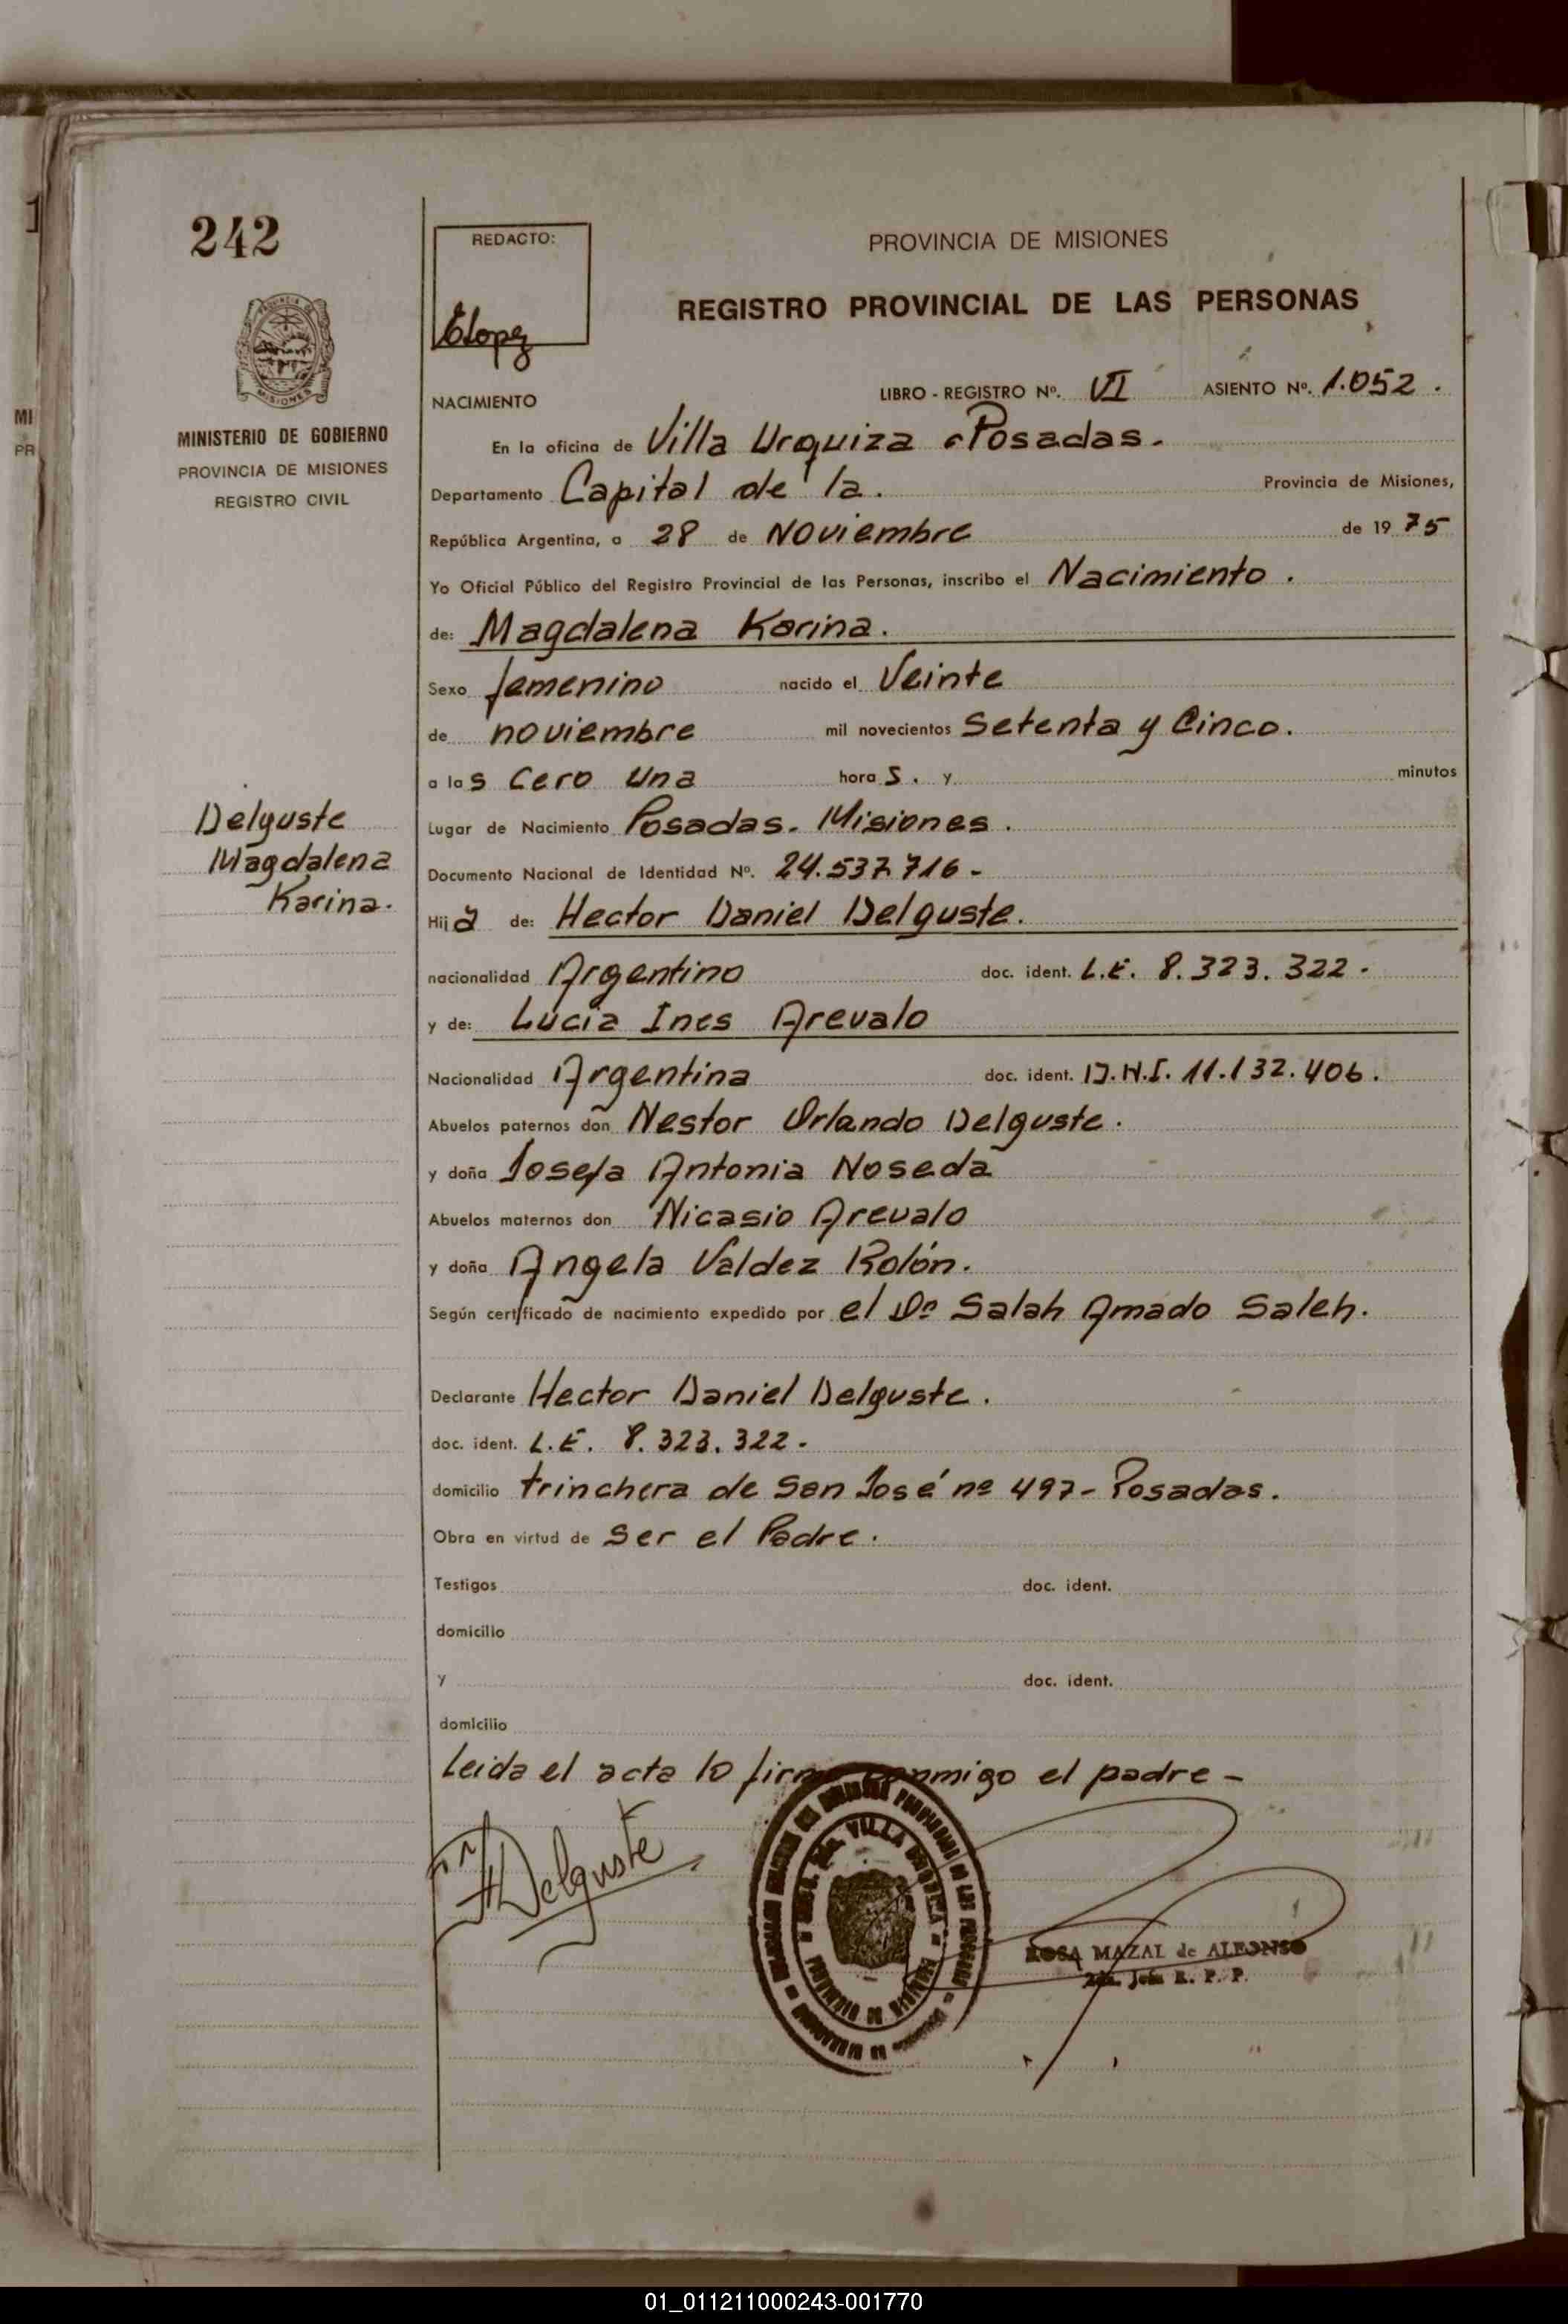 242
REDACTO:
ELopez
PROVINCIA DE MISIONES
REGISTRO PROVINCIAL DE LAS PERSONAS
MISIONES
MINISTERIO DE GOBIERNO
PROVINCIA DE MISIONES
REGISTRO CIVIL
MI
PR
NACIMIENTO LIBRO - REGISTRO Nº. VI ASIENTO Nº. 1.052.
En la oficina de Villa Urquiza - Posadas.
Departamento Capital de la. Provincia de Misiones,
República Argentina, a 28 de Noviembre de 1975
Yo Oficial Público del Registro Provincial de las Personas, inscribo el Nacimiento.
de: Magdalena Karina.
Sexo femenino nacido el Veinte
de noviembre mil novecientos Setenta y Cinco.
a las Cero Una horas. y minutos
Lugar de Nacimiento Posadas. Misiones.
Documento Nacional de Identidad Nº. 24.537.716-
Delguste
Magdalena
Karina.
Hija de: Hector Daniel Delguste.
nacionalidad Argentino doc. ident. L.E. 8.323.322-
y de: Lucia Ines Arevalo
Nacionalidad Argentina doc. ident. D.N.I. 11.132.406.
Abuelos paternos don Nestor Orlando Delguste.
y doña Josefa Antonia Noseda
Abuelos maternos don Nicasio Arevalo
y doña Angela Valdez Rolón.
Según certificado de nacimiento expedido por el Dr Salah Amado Saleh.
Declarante Hector Daniel Delguste.
doc. ident. L.E. 8.323.322-
domicilio trinchera de San José nº 497- Posadas.
Obra en virtud de Ser el Padre.
Testigos doc. ident.
domicilio
y doc. ident.
domicilio
Leida el acta lo firma conmigo el padre -
HDelguste
VILLA URQUIZA
ROSA MAZAL de ALFONSO
R. P. P.
01_011211000243-001770